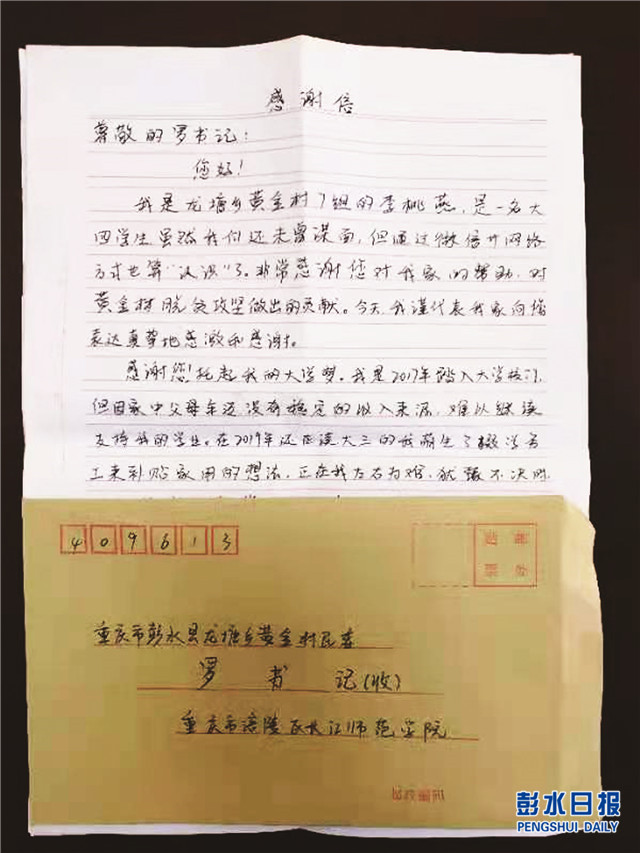 感谢信
尊敬的罗书记:
您好!
我是龙塘乡黄金村7组的李桃燕,是一名大
四学生虽然我们还未曾谋面,但通过微信开网络
方式也算“认识”了。非常感谢您对我家的帮助,对
黄金村脱贫攻坚做出的贡献。今天,我谨代表我家向您
表达真挚地感激和感谢。
感谢您!托起我的大学梦。我是2017年踏入大学校门,
但因家中父母年迈没有稳定的收入来源,难以继续
支持我的学生。在2019年还在读大三的我萌生了辍学务
工来补贴家用的想法,正在我左右为难,犹豫不决时,
409613
贴邮
票处
重庆市彭水县龙塘乡黄金村民委
罗书记(收)
重庆市涪陵区长江师范学院
彭水日报
PENGSHUI DAILY